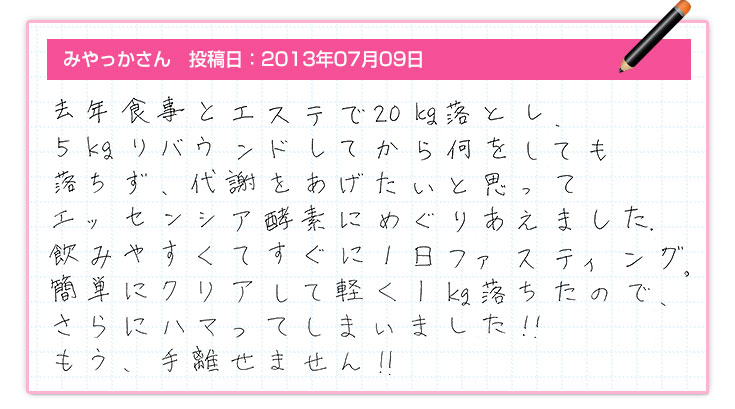 みやっかさん　投稿日：2013年07月09日
去年食事とエステで20kg落とし、
5kgリバウンドしてから何をしても
落ちず、代謝をあげたいと思って
エッセンシア酵素にめぐりあえました.
飲みやすくてすぐに1日ファスティング。
簡単にクリアして軽く1kg落ちたので、
さらにハマってしまいました!!
もう、手離せません!!